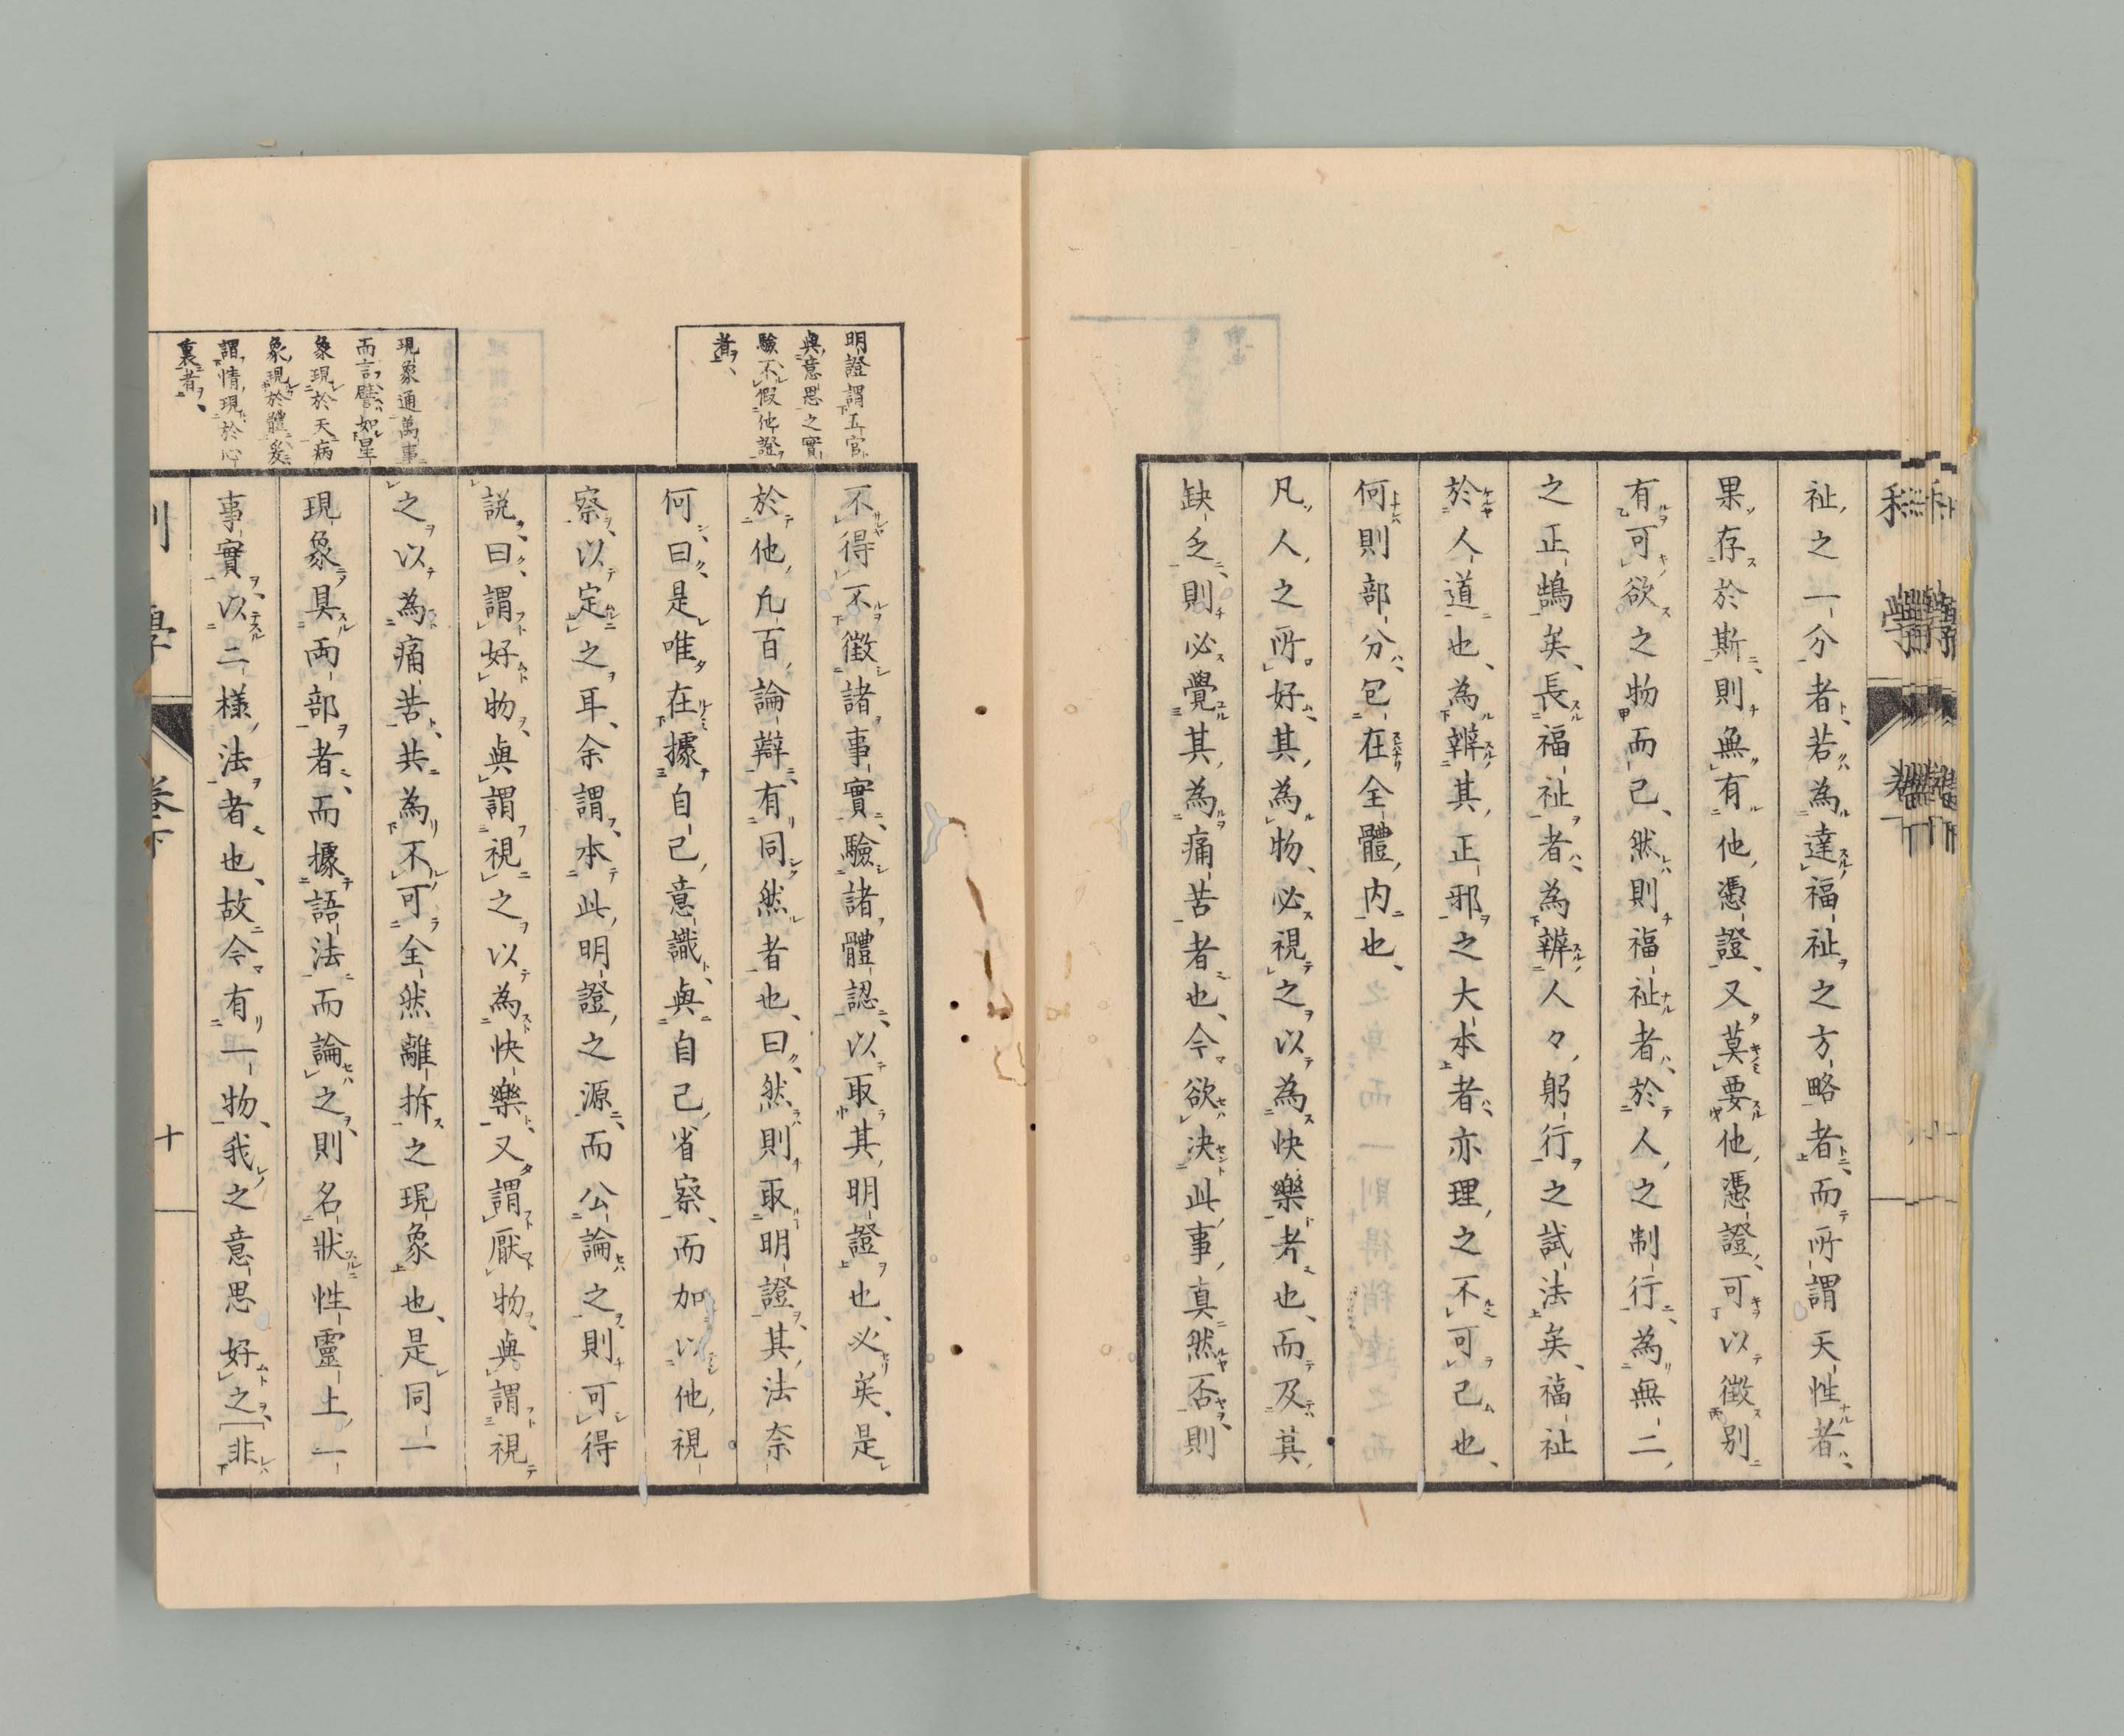 祉之一分者若為達福祉之方略者而所謂天性者
果存於斯則無有他憑證又莫要他憑證可以徴別
有可欲之物而已然則福祉者於人之制行為無二
之正鵠矣長福祉者為辨人々躬行之試法矣福祉
於人道也為辨其正邪之大本者亦理之不可已也
何則部分包在全體内也
凡人之所好其為物必視之以為快樂者也而及其
缺乏則必覺其為痛苦者也今欲决此事真然否則
明證謂五官
與意思之實
驗不假他證
者
不得不徴諸事實驗諸體認以取其明證也必矣是
於他凡百論辯有同然者也曰然則取明證其法奈
何曰是唯在據自己意識與自己省察而加以他視
察以定之耳余謂本此明證之源而公論之則可得
説曰謂好物與謂視之以為快樂又謂厭物與謂視
之以為痛苦共為不可全然離拆之現象也是同一
現象具両部者而據語法而論之則名狀性靈上一
事實以二様法者也故今有一物我之意思好之非
現象通萬事
而言譬如星
象現於天病
象現於體爰
謂情現於心
裏者
利學 卷下 十